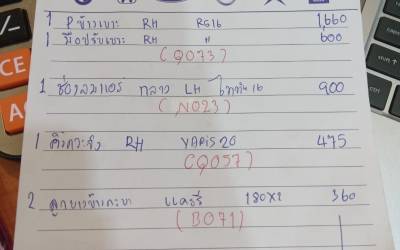 1 ข้างเบาะ RH RG16 1,660
1 มือปรับเบาะ RH " 600
(Q073)
1 ช่องลมแอร์ กลาง LH 16 900
(N023)
1 คิ้ว RH YARIS 20 475
(Q057)
2 ลูกยาง แคร์รี่ 180x2 360
(B071)
ACE
AC